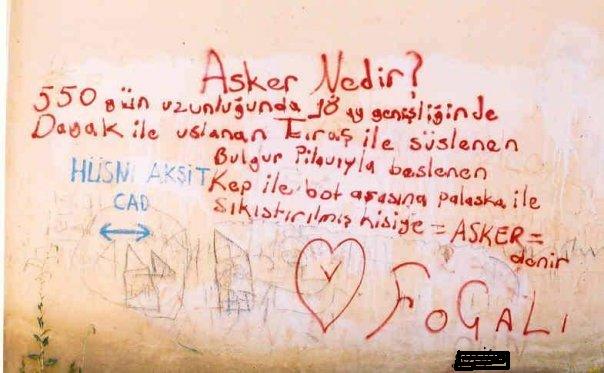 Asker Nedir?
550 gün uzunluğunda 18 ay genişliğinde
Dayak ile uslanan Tıraş ile süslenen
Bulgur Pilavıyla beslenen
Kep ile bot arasına palaska ile
Sıkıştırılmış kişiye = ASKER =
denir
HÜSNÜ AKŞİT
CAD
FOÇALI